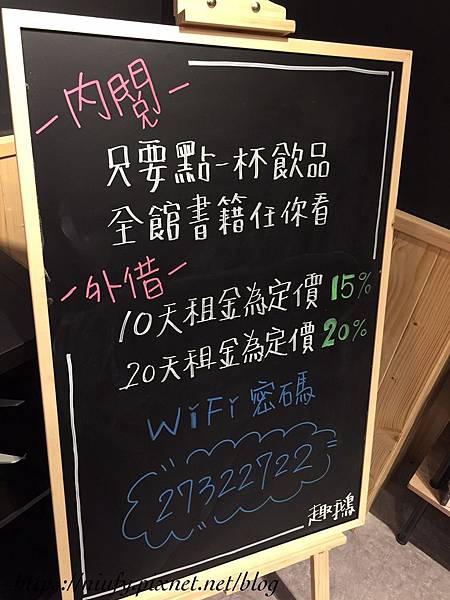 -內閱-
只要點一杯飲品
全館書籍任你看
-外借-
10天租金為定價15%
20天租金為定價20%
WiFi密碼
27322722
趣鴉
http://niufy.pixnet.net/blog